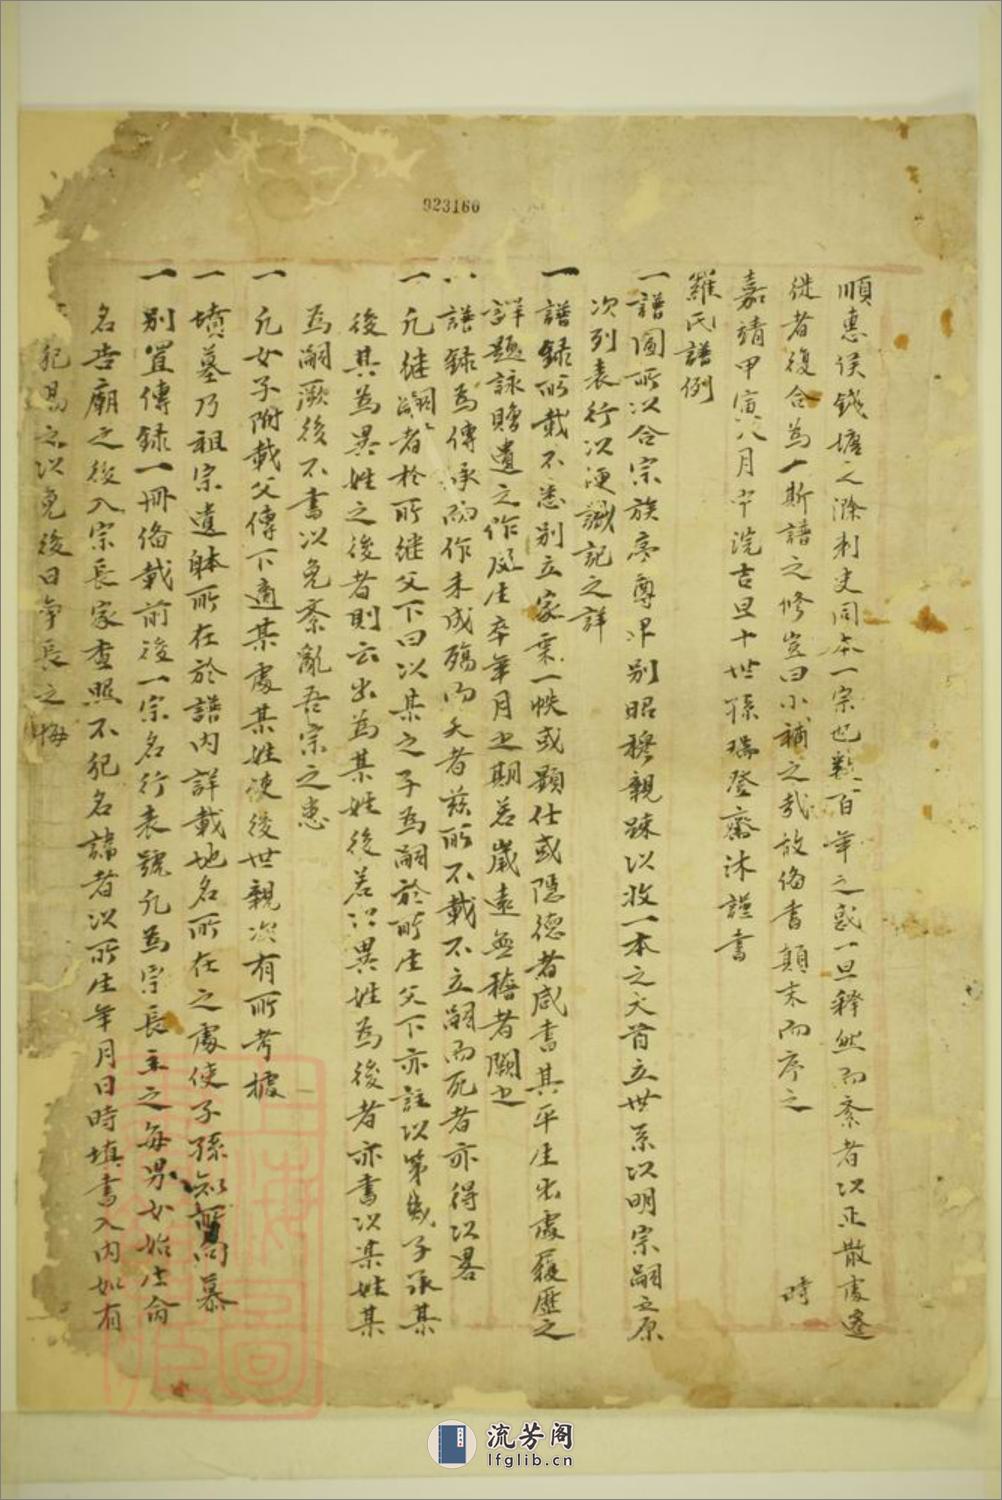 順惠侯錢塘之滁刺史同本一宗也數百年之惑一旦釋然而紊者以正散處遷
徙者復合為一斯譜之修豈曰小補之哉故偹書顛末而序之 時
嘉靖甲寅八月中浣吉旦十世孫瑞登齋沐謹書
羅氏譜例
一譜圖所以合宗族序尊卑别昭穆親踈以收一本之文首立世系以明宗嗣之原
次列表行以便識記之詳
一譜錄所載不悉别立家乗一帙或顯仕或隱德者咸書其平生出處履歷之
詳題詠贈遺之作及生卒年月之期若歲遠無稽者闕之
譜錄為傳承而作未成殤而夭者兹所不載不立嗣而死者亦得以畧
一凡继嗣者於所继父下曰以某之子為嗣於所生父下亦註以第幾子承某
後其為異姓之後者則云出為某姓後若以異姓為後者亦書以某姓某
為嗣厥後不書以免紊亂吾宗之患
一凡女子附載父傳下適某處某姓使後世親次有所考據
一墳墓乃祖宗遺躰所在於譜内詳載地名所在之處使子孫知所向慕
一别置傳録一冊偹載前後一宗名行表號凡為宗長主之每男女始生命
名告廟之後入宗長家查照不犯名諱者以所生年月日時填書入内如有
犯易之以免後日爭長之悔
923160
流芳阁
lfglib.cn